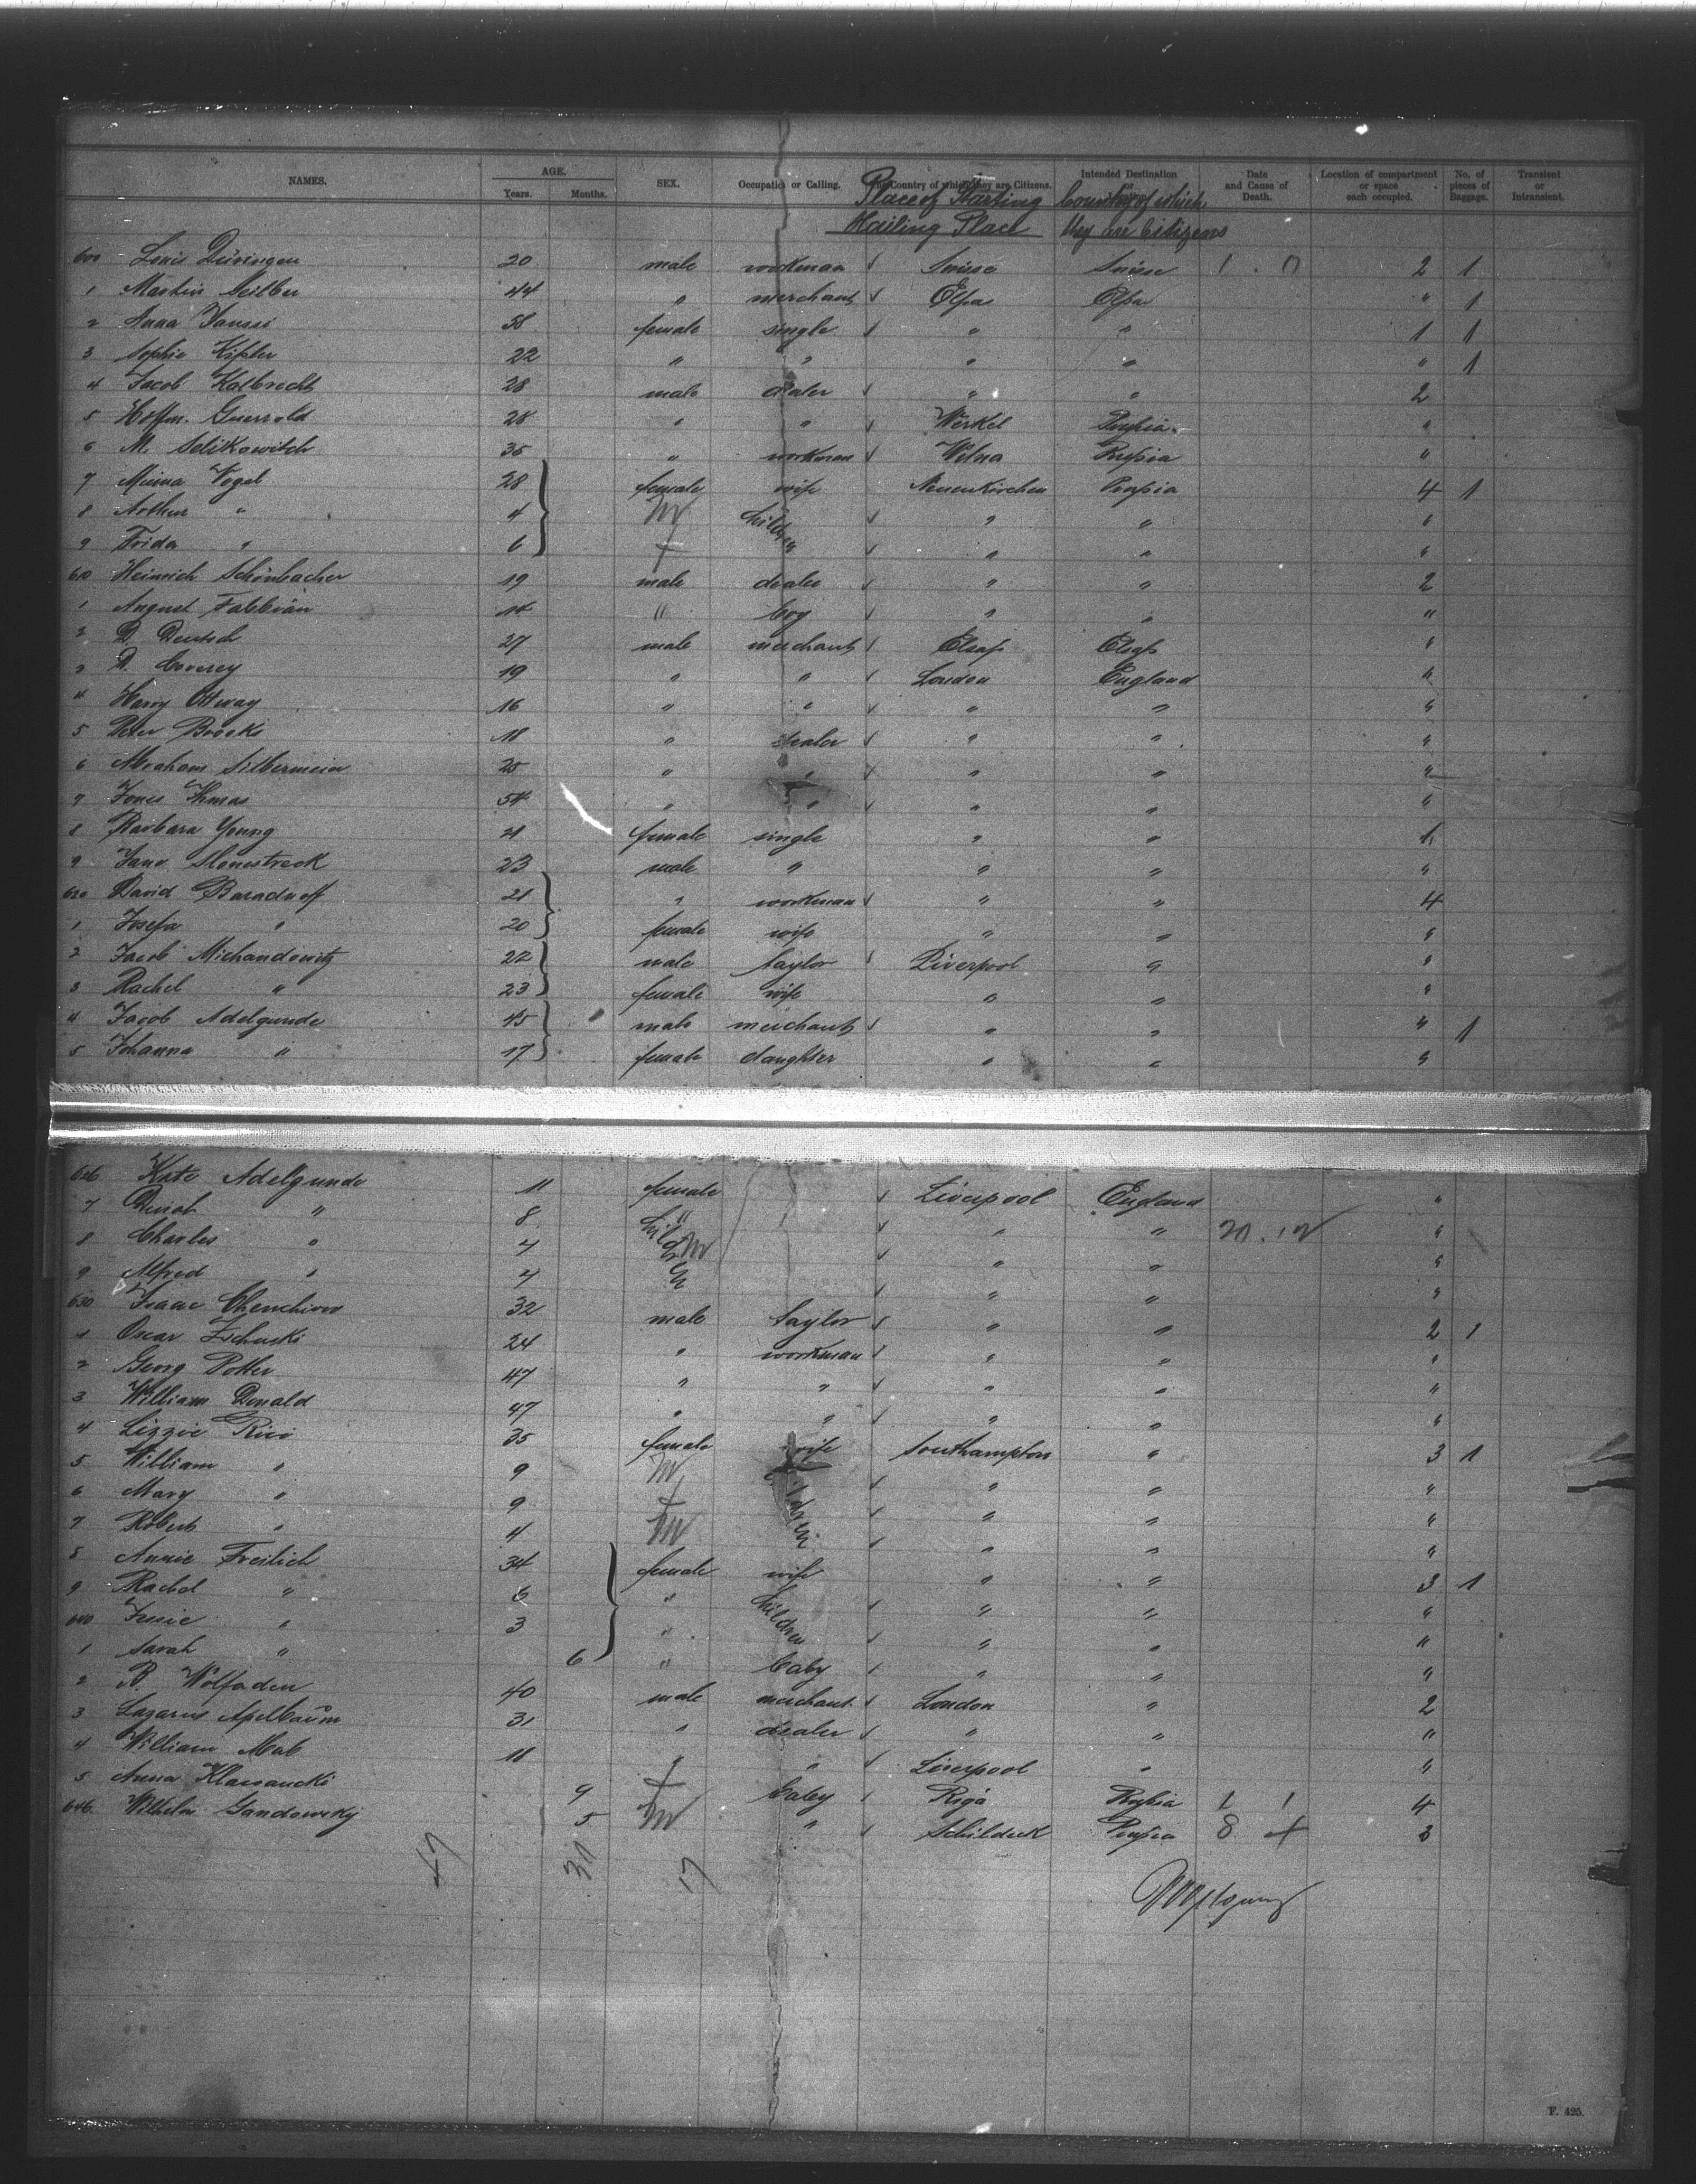 NAMES. AGE. Years. Months. SEX. Occupation or Calling. The Country of which they are Citizens. Intended Destination or Date and Cause of Death. Location of compartment or space each occupied. No. of pieces of Baggage. Transient or Intransient.
Place of Starting Country of which
Mailing Place they are Citizens
600 Louis Düringer 20 male workman √ Suisse Suisse 2 1
1 Martin 44 " merchant √ Elsas Elsas " 1
2 Anna 58 female single √ " " 1 1
3 Sophie Kißler 22 " " " " " 1
4 Jacob Kalbrecht 28 male dealer √ " " 2
5 Hoffm. 28 " " √ Werkel "
6 M. Selikowitch 35 " workman √ Wilna Rußia "
7 Minna Vogel 28 female wife Neuenkirchen Prußia 4 1
8 Arthur " 4 M children √ " " "
9 Frida " 6 f √ " " "
610 Heinrich Schönbacher 19 male dealer √ " " 2
1 August Fabbian 14 " boy √ " " "
2 D. Deutsch 27 male merchant √ Elsaß Elsaß "
3 19 " " √ London England "
4 Harry Ottway 16 " " √ " " "
5 Peter Brooks 18 " dealer √ " " "
6 Abraham Silbermein 25 " " √ " " "
7 Jones Thmas 54 " " √ " " "
8 Barbara Young 21 female single " " 1
9 Jane 23 male " " " "
620 David Baradnoff 21 " workman √ " " 4
1 Josefa " 20 female wife " " "
2 Jacob Michandowitz 22 male taylor √ Liverpool " "
3 Rachel " 23 female wife " " "
4 Jacob Adelgunde 45 male merchant √ " " " 1
5 Johanna " 17 female daughter " " "
626 Kate Adelgunde 11 female √ Liverpool England "
7 Dinah " 8 " √ " " "
8 Charles " 4 children M √ " " "
9 Alfred " 4 √ " " "
630 Isaac 32 male taylor √ " " 2 1
1 Oscar 24 " workman √ " " "
2 Georg Potter 47 " " √ " " "
3 William Donald 47 " " √ " " "
4 Lizzie Rice 35 female wife Southampton " 3 1
5 William " 9 M children √ " " "
6 Mary " 9 f √ " " "
7 Robert " 4 M √ " " "
8 Annie Freilich 34 female wife " " 3 1
9 Rachel " 6 " children √ " " "
640 Jessie " 3 " √ " " "
1 Sarah " 6 " baby √ " " "
2 B. Wolfaden 40 male merchant √ London " 2
3 Lazarus Apelbaum 31 " dealer √ " " "
4 William Mab 18 " " √ Liverpool " "
5 Anna 9 f baby √ Riga Rußia 4
646 Wilhelm Gandowsky 5 M " √ Schildeck Prußia 3
47 30 17
F. 425.